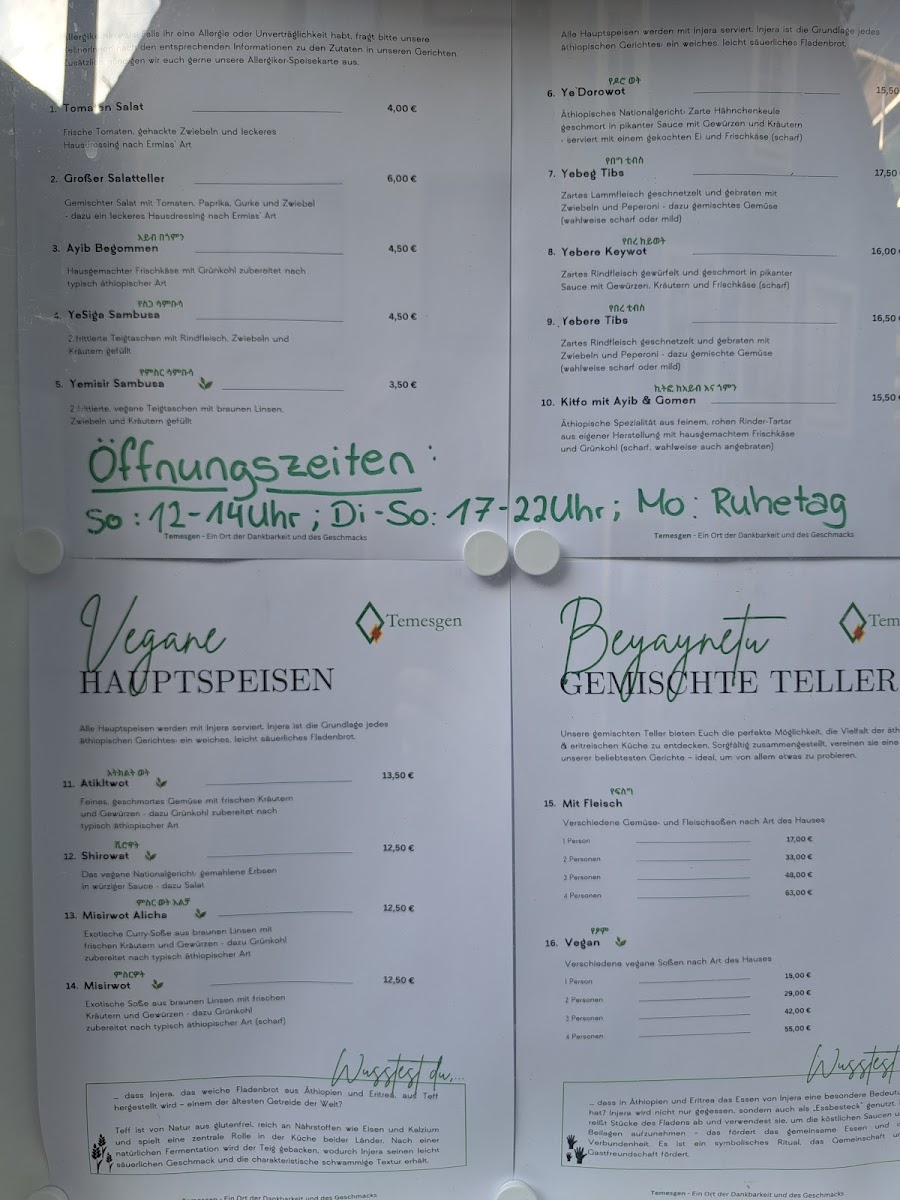 Falls ihr eine Allergie oder Unverträglichkeit habt, fragt bitte unsere
den entsprechenden Informationen zu den Zutaten in unseren Gerichten.
wir euch gerne unsere Allergiker-Speisekarte aus.
1. Tomaten Salat 4,00 €
Frische Tomaten, gehackte Zwiebeln und leckeres
Hausdressing nach Ermias' Art
2. Großer Salatteller 6,00 €
Gemischter Salat mit Tomaten, Paprika, Gurke und Zwiebel
- dazu ein leckeres Hausdressing nach Ermias' Art
አይብ በጎምን
3. Ayib Begommen 4,50 €
Hausgemachter Frischkäse mit Grünkohl zubereitet nach
typisch äthiopischer Art
የስጋ ሳምቡሳ
4. YeSiga Sambusa 4,50 €
2 frittierte Teigtaschen mit Rindfleisch, Zwiebeln und
Kräutern gefüllt
የምስር ሳምቡሳ
5. Yemisir Sambusa 3,50 €
2 frittierte, vegane Teigtaschen mit braunen Linsen,
Zwiebeln und Kräutern gefüllt
Alle Hauptspeisen werden mit Injera serviert. Injera ist die Grundlage jedes
äthiopischen Gerichtes: ein weiches, leicht säuerliches Fladenbrot.
የዶር ወት
6. Ye'Dorowot 15,50
Äthiopisches Nationalgericht: Zarte Hähnchenkeule
geschmort in pikanter Sauce mit Gewürzen und Kräutern
- serviert mit einem gekochten Ei und Frischkäse (scharf)
የበግ ቲብስ
7. Yebeg Tibs 17,50
Zartes Lammfleisch geschnetzelt und gebraten mit
Zwiebeln und Peperoni - dazu gemischtes Gemüse
(wahlweise scharf oder mild)
የበሬ ከይወት
8. Yebere Keywot 16,00
Zartes Rindfleisch gewürfelt und geschmort in pikanter
Sauce mit Gewürzen, Kräutern und Frischkäse (scharf)
የበሬ ቲብስ
9. Yebere Tibs 16,50
Zartes Rindfleisch geschnetzelt und gebraten mit
Zwiebeln und Peperoni - dazu gemischte Gemüse
(wahlweise scharf oder mild)
ክትፎ ከአይብ እና ጎምን
10. Kitfo mit Ayib & Gomen 15,50
Äthiopische Spezialität aus feinem, rohen Rinder-Tartar
aus eigener Herstellung mit hausgemachtem Frischkäse
und Grünkohl (scharf, wahlweise auch angebraten)
Öffnungszeiten:
So: 12-14Uhr; Di-So: 17-22Uhr; Mo: Ruhetag
Temesgen - Ein Ort der Dankbarkeit und des Geschmacks
Temesgen - Ein Ort der Dankbarkeit und des Geschmacks
Vegane
Temesgen
HAUPTSPEISEN
Alle Hauptspeisen werden mit Injera serviert. Injera ist die Grundlage jedes
äthiopischen Gerichtes: ein weiches, leicht säuerliches Fladenbrot.
አትክልት ወት
11. Atikltwot 13,50 €
Feines, geschmortes Gemüse mit frischen Kräutern
und Gewürzen - dazu Grünkohl zubereitet nach
typisch äthiopischer Art
ሺሮዋት
12. Shirowat 12,50 €
Das vegane Nationalgericht: gemahlene Erbsen
in würziger Sauce - dazu Salat
ምስር ወት አልቻ
13. Misirwot Alicha 12,50 €
Exotische Curry-Soße aus braunen Linsen mit
frischen Kräutern und Gewürzen - dazu Grünkohl
zubereitet nach typisch äthiopischer Art
ምስርዎት
14. Misirwot 12,50 €
Exotische Soße aus braunen Linsen mit frischen
Kräutern und Gewürzen - dazu Grünkohl
zubereitet nach typisch äthiopischer Art (scharf)
Wusstest du,...
... dass Injera, das weiche Fladenbrot aus Äthiopien und Eritrea, aus Teff
hergestellt wird – einem der ältesten Getreide der Welt?
Teff ist von Natur aus glutenfrei, reich an Nährstoffen wie Eisen und Kalzium
und spielt eine zentrale Rolle in der Küche beider Länder. Nach einer
natürlichen Fermentation wird der Teig gebacken, wodurch Injera seinen leicht
säuerlichen Geschmack und die charakteristische schwammige Textur erhält.
Ein Ort der Dankbarkeit und des Geschmacks
Beyaynetu
Tem
GEMISCHTE TELLER
Unsere gemischten Teller bieten Euch die perfekte Möglichkeit, die Vielfalt der äth
& eritreischen Küche zu entdecken. Sorgfältig zusammengestellt, vereinen sie eine
unserer beliebtesten Gerichte – ideal, um von allem etwas zu probieren.
የፍስግ
15. Mit Fleisch
Verschiedene Gemüse- und Fleischsoßen nach Art des Hauses
1 Person 17,00 €
2 Personen 33,00 €
3 Personen 48,00 €
4 Personen 63,00 €
የፆም
16. Vegan
Verschiedene vegane Soßen nach Art des Hauses
1 Person 15,00 €
2 Personen 29,00 €
3 Personen 42,00 €
4 Personen 55,00 €
Wusstest
... dass in Äthiopien und Eritrea das Essen von Injera eine besondere Bedeutu
hat? Injera wird nicht nur gegessen, sondern auch als „Essbesteck“ genutzt.
reißt Stücke des Fladens ab und verwendet sie, um die köstlichen Saucen u
Beilagen aufzunehmen - das fördert das gemeinsame Essen und
Verbundenheit. Es ist ein symbolisches Ritual, das Gemeinschaft u
Gastfreundschaft fördert.
Temesgen - Ein Ort der Dankbarkeit und des Geschmacks